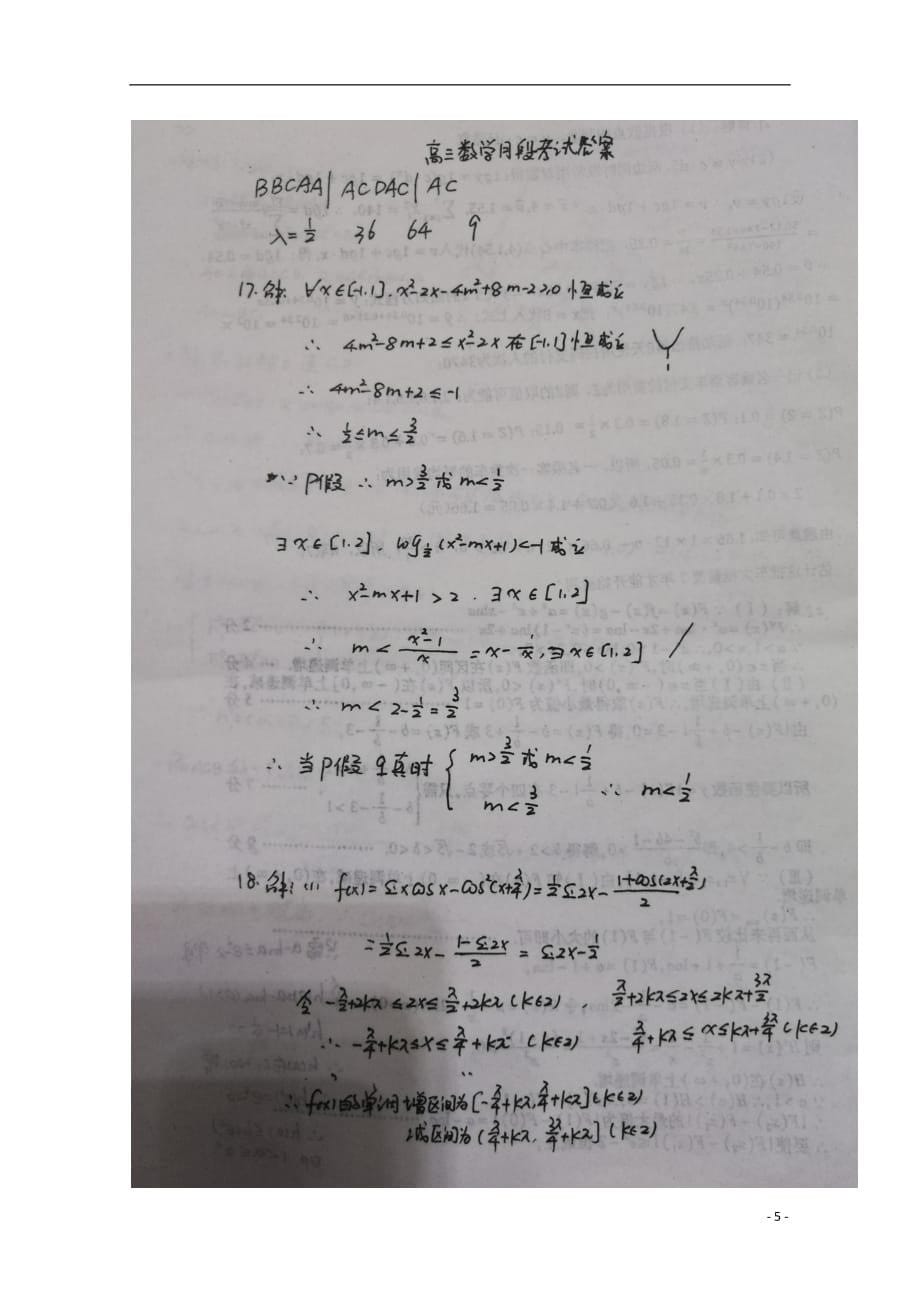 高三数学月段考试答案
BBCAA| ACDAC| AC
λ=1/2 36 64 9
17.解: ∀x∈[-1.1], x²-2x-4m²+8m-2≥0恒成立
∴ 4m²-8m+2≤x²-2x在[-1.1]恒成立
∴ 4m²-8m+2≤-1
∴ 1/2≤m≤3/2
∵ P假 ∴ m>3/2或m<1/2
∃x∈[1.2], log_{1/2}(x²-mx+1)<-1成立
∴ x²-mx+1>2. ∃x∈[1.2]
∴ m<(x²-1)/x=x-1/x, ∃x∈[1.2]
∴ m<2-1/2=3/2
∴ 当P假 q真时 { m>3/2或m<1/2 m<3/2 ∴ m<1/2
18.解: (1) f(x)=sinxcosx-cos²(x+π/4)=1/2sin2x-(1+cos(2x+π/2))/2
=1/2sin2x-(1-sin2x)/2=sin2x-1/2
令-π/2+2kπ≤2x≤π/2+2kπ(k∈Z), π/2+2kπ≤2x≤2kπ+3π/2
∴ -π/4+kπ≤x≤π/4+kπ (k∈Z) π/4+kπ≤x≤kπ+3π/4(k∈Z)
∴ f(x)的单调增区间为[-π/4+kπ,π/4+kπ](k∈Z)
减区间为(π/4+kπ,3π/4+kπ](k∈Z)
- 5 -